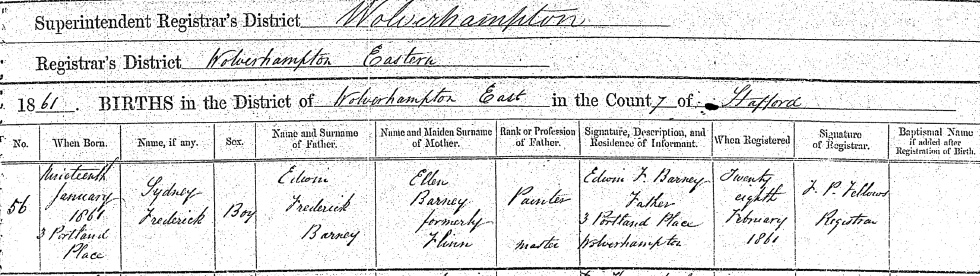 Superintendent Registrar's District Wolverhampton
Registrar's District Wolverhampton Eastern
1861. BIRTHS in the District of Wolverhampton East in the County of Stafford
No. When Born. Name, if any. Sex. Name and Surname of Father. Name and Maiden Surname of Mother. Rank or Profession of Father. Signature, Description, and Residence of Informant. When Registered Signature of Registrar. Baptismal Name if added after Registration of Birth.
56 Nineteenth January 1861 3 Portland Place Sydney Frederick Boy Edwin Frederick Barney Ellen Barney formerly Flinn Painter master Edwin F. Barney Father 3 Portland Place Wolverhampton Twenty eighth February 1861 F. P. Fellows Registrar